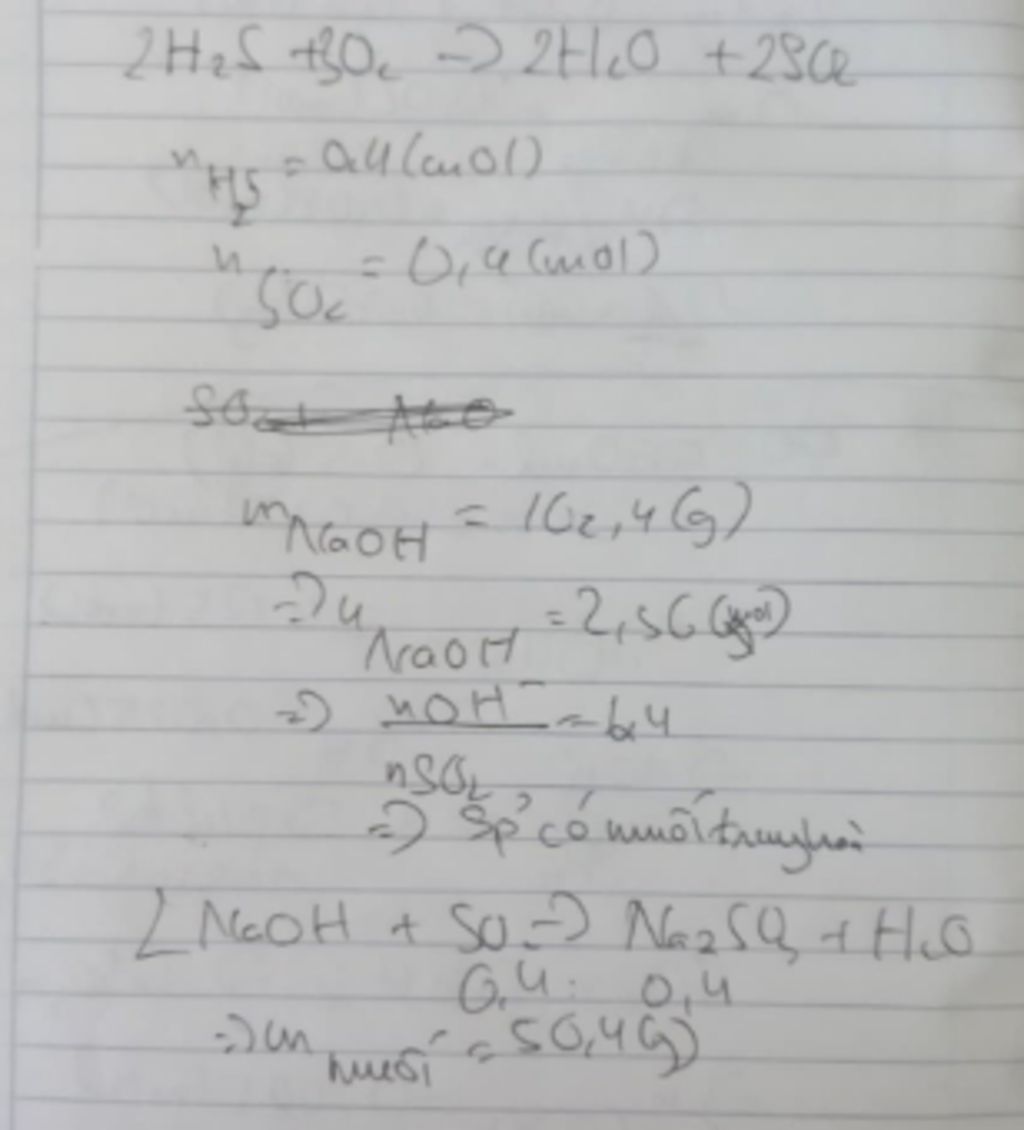 2H₂S + 3O₂ → 2H₂O + 2SO₂
n H₂S = 0,4 (mol)
n SO₂ = 0,4 (mol)
m NaOH = 102,4 (g)
=> n NaOH = 2,56 (mol)
=> nOH⁻ / nSO₂ = 6,4
=> Sp' có muối trung hoà
2NaOH + SO₂ → Na₂SO₃ + H₂O
0,4 : 0,4
=> m muối = 50,4 (g)